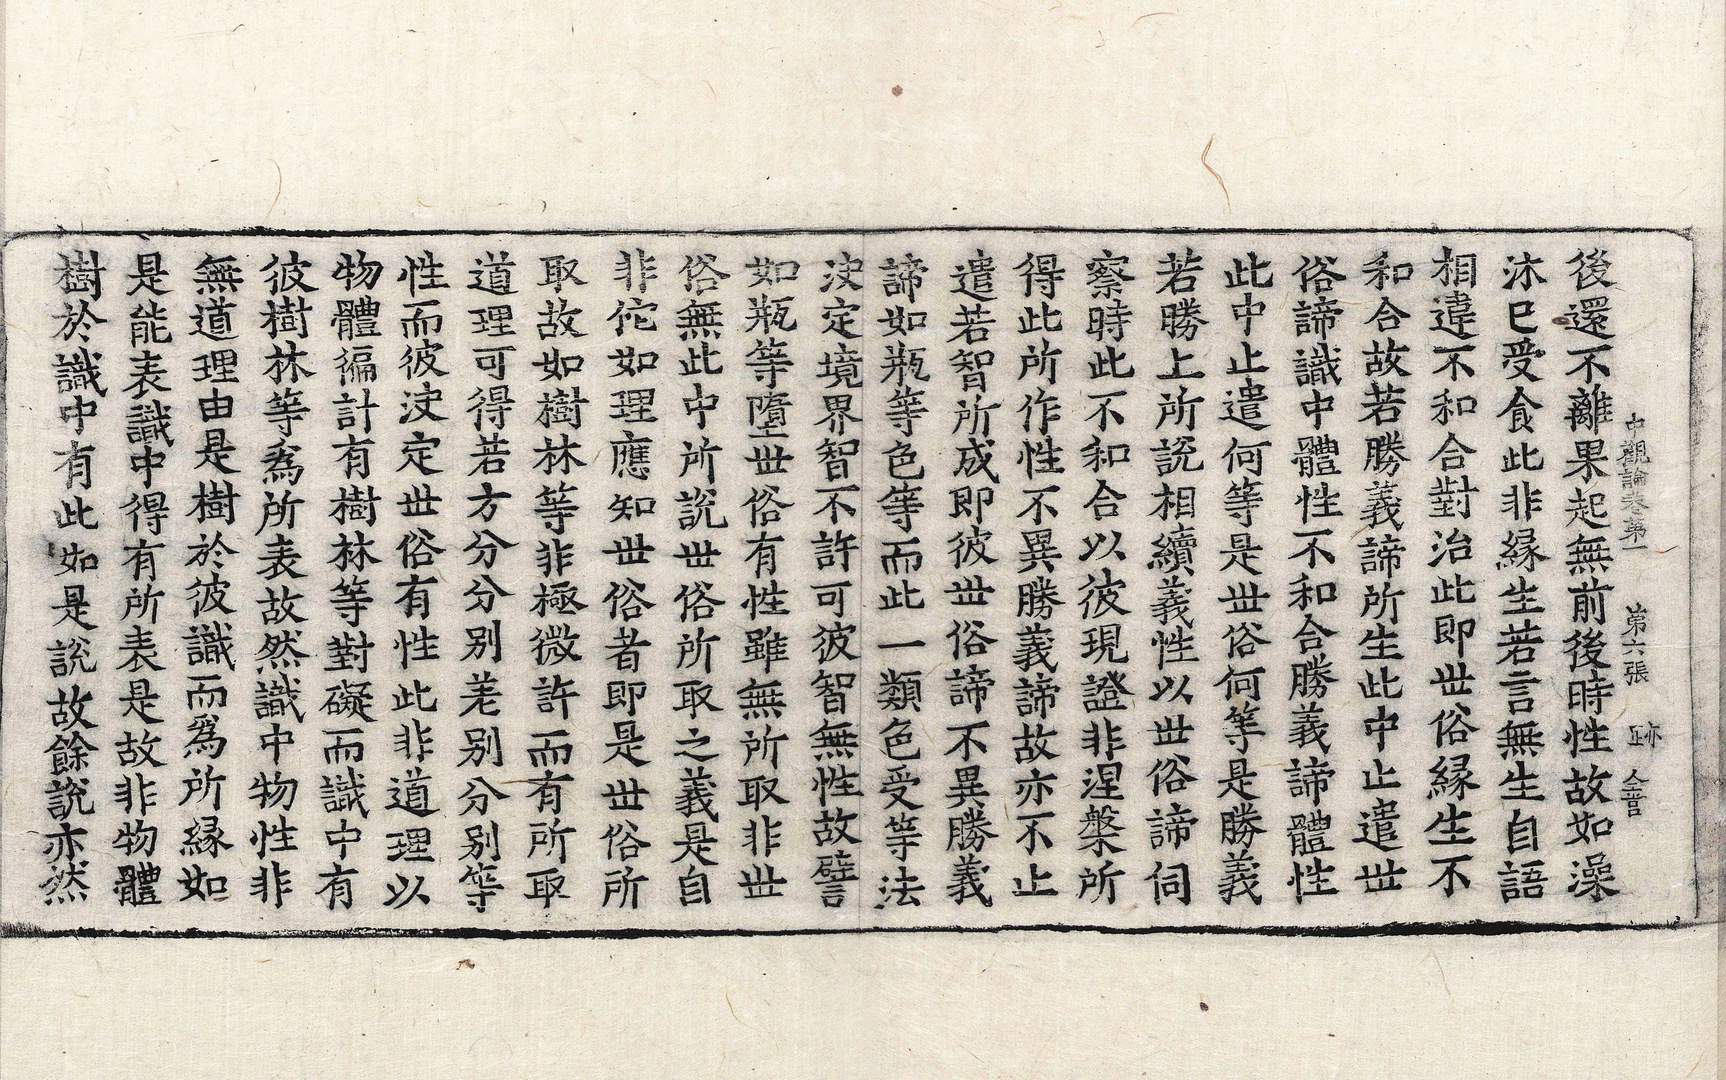 中觀論卷第一 第六張 亦正 全音
後還不離果起無前後時性故如澡
沐已受食此非緣生若言無生自語
相違不和合對治此即世俗緣生不
和合故若勝義諦所生此中止遣世
俗諦識中體性不和合勝義諦體性
此中止遣何等是世俗何等是勝義
若勝上所說相續義性以世俗諦伺
察時此不和合以彼現證非涅槃所
得此所作性不異勝義諦故亦不止
遣若智所成即彼世俗諦不異勝義
諦如瓶等色等而此一類色受等法
決定境界智不許可彼智無性故譬
如瓶等墮世俗有性雖無所取非世
俗無此中所說世俗所取之義是自
非佗如理應知世俗者即是世俗所
取故如樹林等非極微許而有所取
道理可得若方分分別差別分別等
性而彼決定世俗有性此非道理以
物體徧計有樹林等對礙而識中有
彼樹林等為所表故然識中物性非
無道理由是樹於彼識而為所緣如
是能表識中得有所表是故非物體
樹於識中有此如是說故餘說亦然